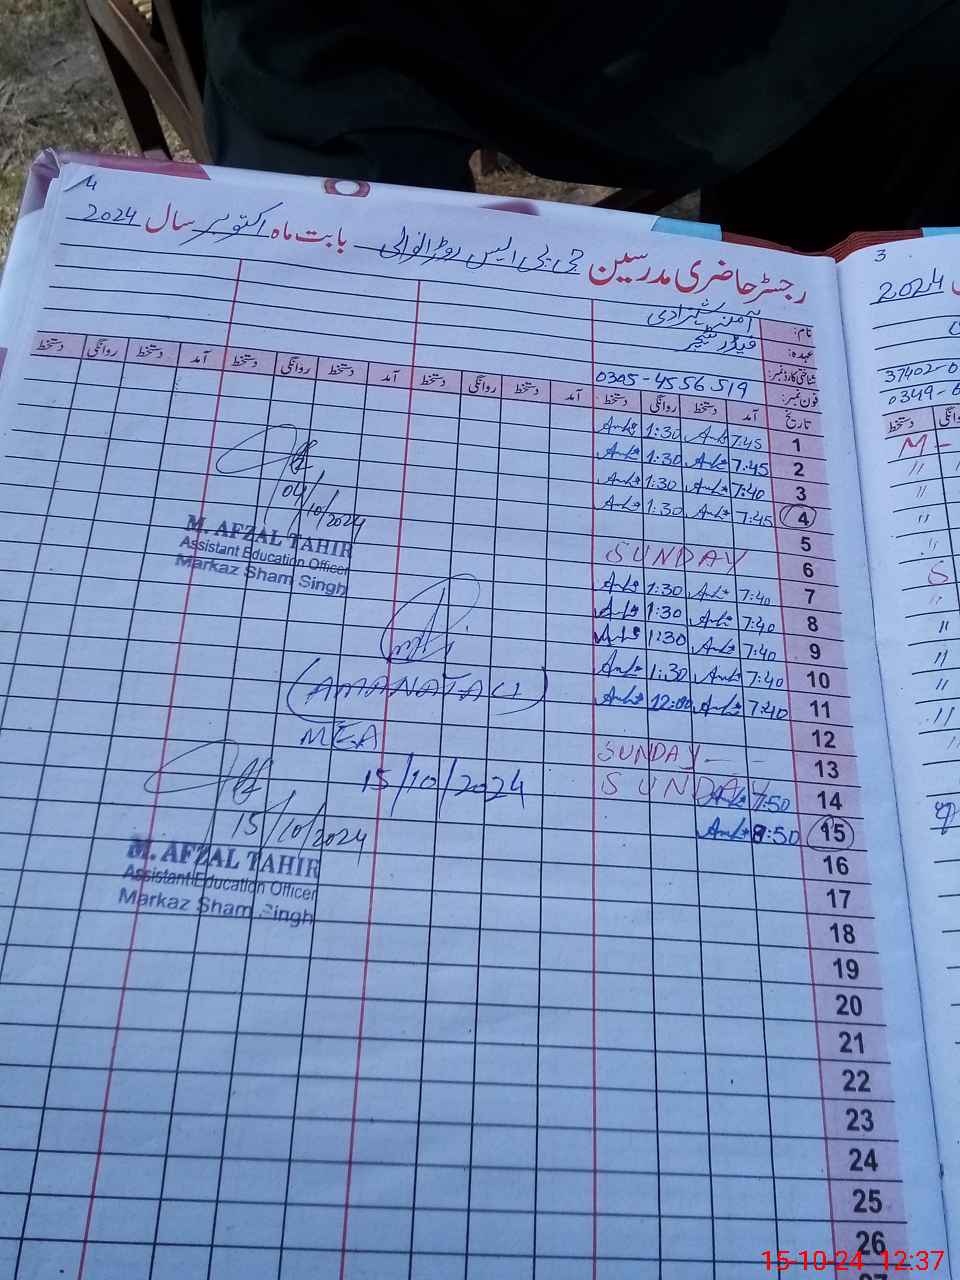 رجسٹر حاضری مدرسین جی پی ایس روڑانوالی بابت ماہ اکتوبر سال 2024
نام: آمنہ شہزادی
عہدہ: فیڈر ٹیچر
شناختی کارڈ نمبر:
فون نمبر: 0305-4556519
تاریخ آمد دستخط روانگی دستخط آمد دستخط روانگی دستخط آمد دستخط روانگی دستخط
1 7:45 1:30
2 7:45 1:30
3 7:40 1:30
4 7:45 1:30
5
6 SUNDAY
7 7:40 1:30
8 7:40 1:30
9 7:40 1:30
10 7:40 1:30
11 7:40 12:00
12
13 SUNDAY
14 SUNDAY 7:50
15 :50
16
17
18
19
20
21
22
23
24
25
26
04/10/2024
M. AFZAL TAHIR
Assistant Education Officer
Markaz Sham Singh
(AMANAT ALI)
MEA
15/10/2024
15/10/2024
M. AFZAL TAHIR
Assistant Education Officer
Markaz Sham Singh
3
2024
37402-0
0349-6
دستخط
M-
S
15-10-24 12:37